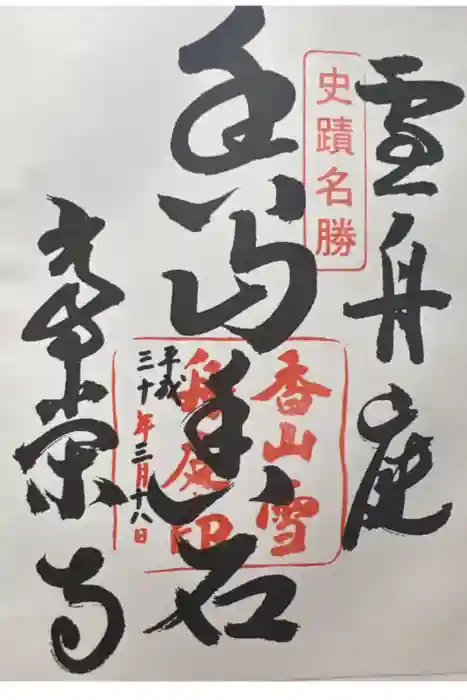 雪舟庭
史蹟名勝
山
石
香山雪
舟庭印
平成
三十年三月十八日
常栄寺